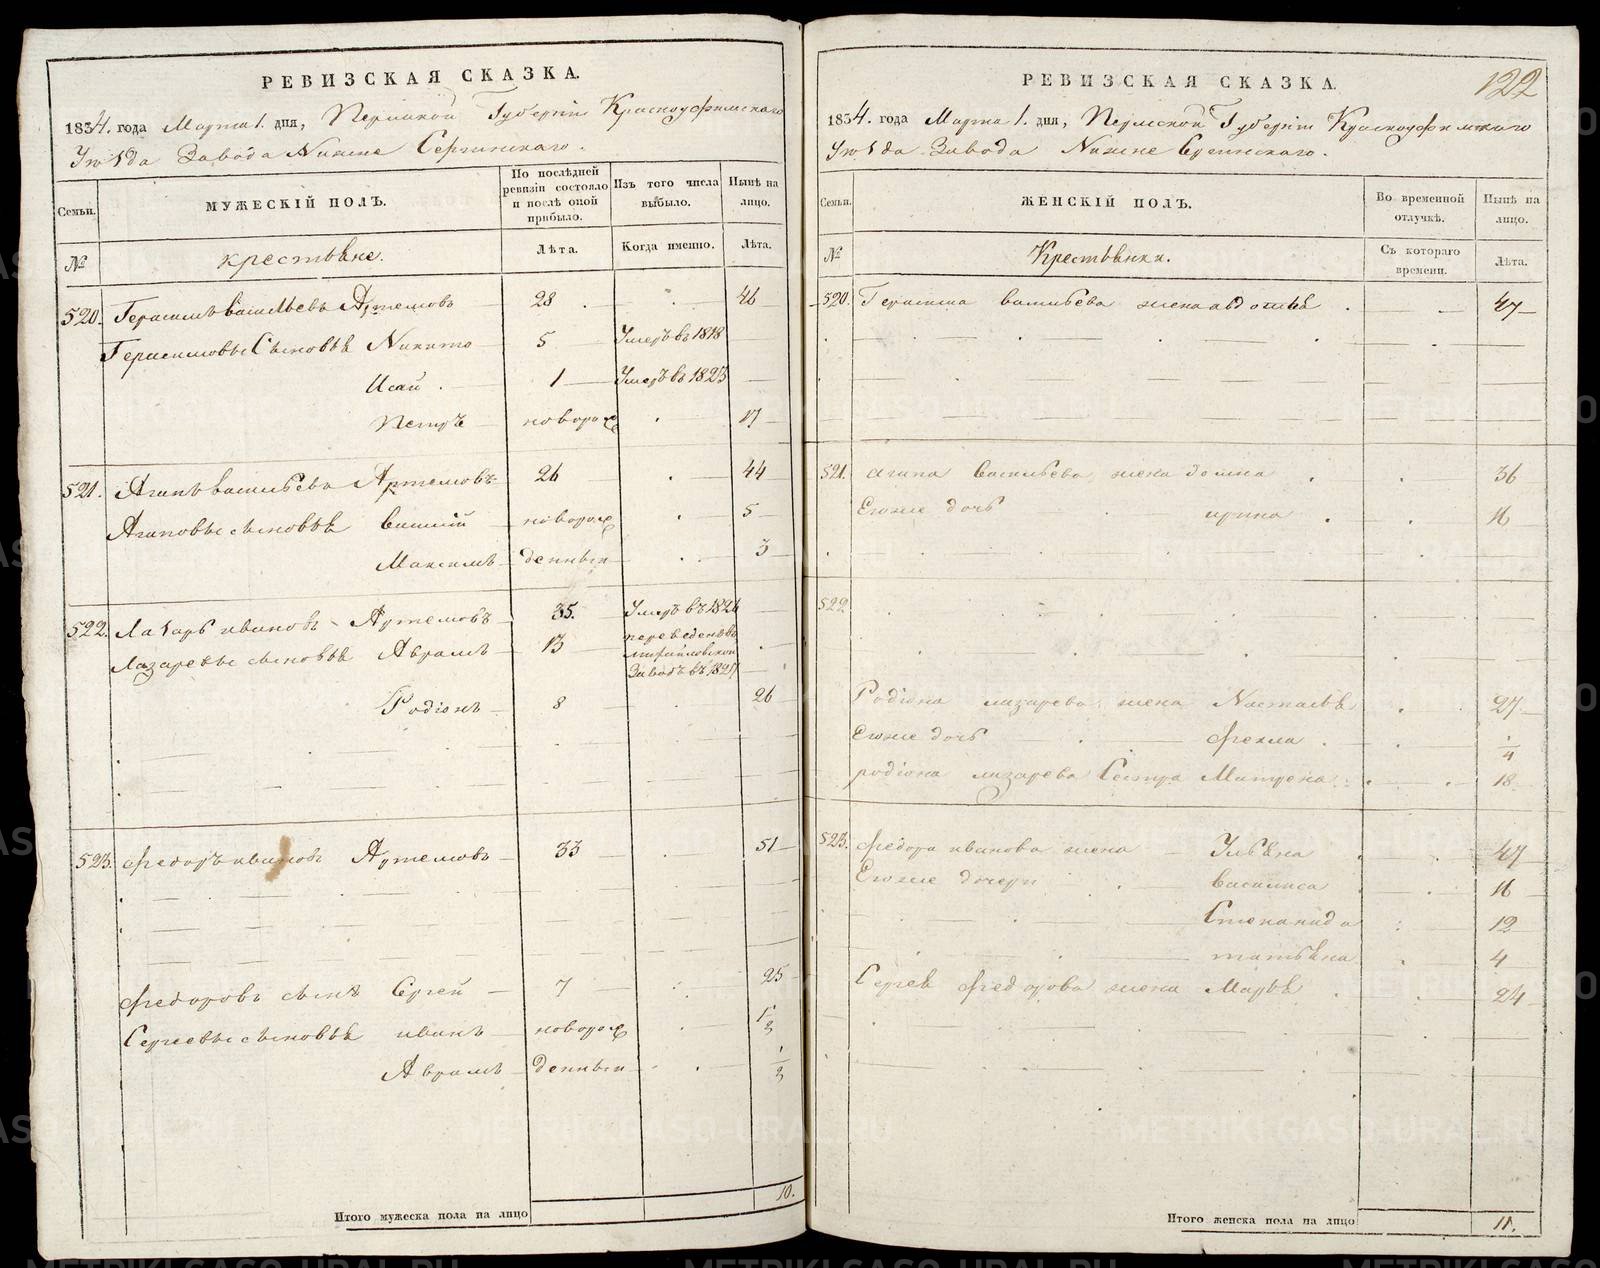 РЕВИЗСКАЯ СКАЗКА.
1834. года Марта 1. дня, Пермской Губерніи Красноуфимскаго
Уѣзда Завода Нижне Сергинскаго.
Семьи.
МУЖЕСКІЙ ПОЛЪ.
По послѣдней ревизіи состояло и послѣ оной прибыло.
Изъ того числа выбыло.
Нынѣ на лицо.
№
крестьяне.
Лѣта.
Когда именно.
Лѣта.
520. Герасимъ васильевъ Артемовъ 28 46
Герасимовы Сыновья Никита 5 Умеръ въ 1818
Исай 1 Умеръ въ 1823
Петръ новорож 17
521. Агапъ васильевъ Артемовъ 26 44
Агаповы сыновья Василій новорож 5
Максимъ денныи 3
522. Лазарь ивановъ Артемовъ 35. Умеръ въ 1826
Лазаревы сыновья Аврамъ 13 переведенъ въ
Михайловской
Заводъ въ 1827
Родіонъ 8 26
523. Федоръ ивановъ Артемовъ 33 51
Федоровъ сынъ Сергей 7 25
Сергеевы сыновья иванъ новорож
Аврамъ денныи
10.
Итого мужеска пола на лицо
122
РЕВИЗСКАЯ СКАЗКА.
1834. года Марта 1. дня, Пермской Губерніи Красноуфимскаго
Уѣзда Завода Нижне Сергинскаго.
Семьи.
ЖЕНСКІЙ ПОЛЪ.
Во временной отлучкѣ.
Нынѣ на лицо.
№
Крестьянки.
Съ котораго времени.
Лѣта.
520. Герасима васильева жена авдотья 47
521. агапа Васильева жена домна 36
Егоже дочь ирина 16
522
Родіона лазарева жена Настасья 27
Егоже дочь Фекла
родіона лазарева Сестра Матрена 18
523. Федора иванова жена Ульяна 47
Егоже дочери василиса 16
Степанида 12
татьяна 4
Сергея Федорова жена Марья 24
Итого женска пола на лицо
11.
METRIKI.GASO-URAL.RU